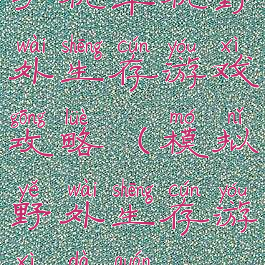 wài shēng cún yóu xì
外生存游戏
gōng lüè mó nǐ
攻略（模拟
yě wài shēng cún yóu
野外生存游
xì dà quán